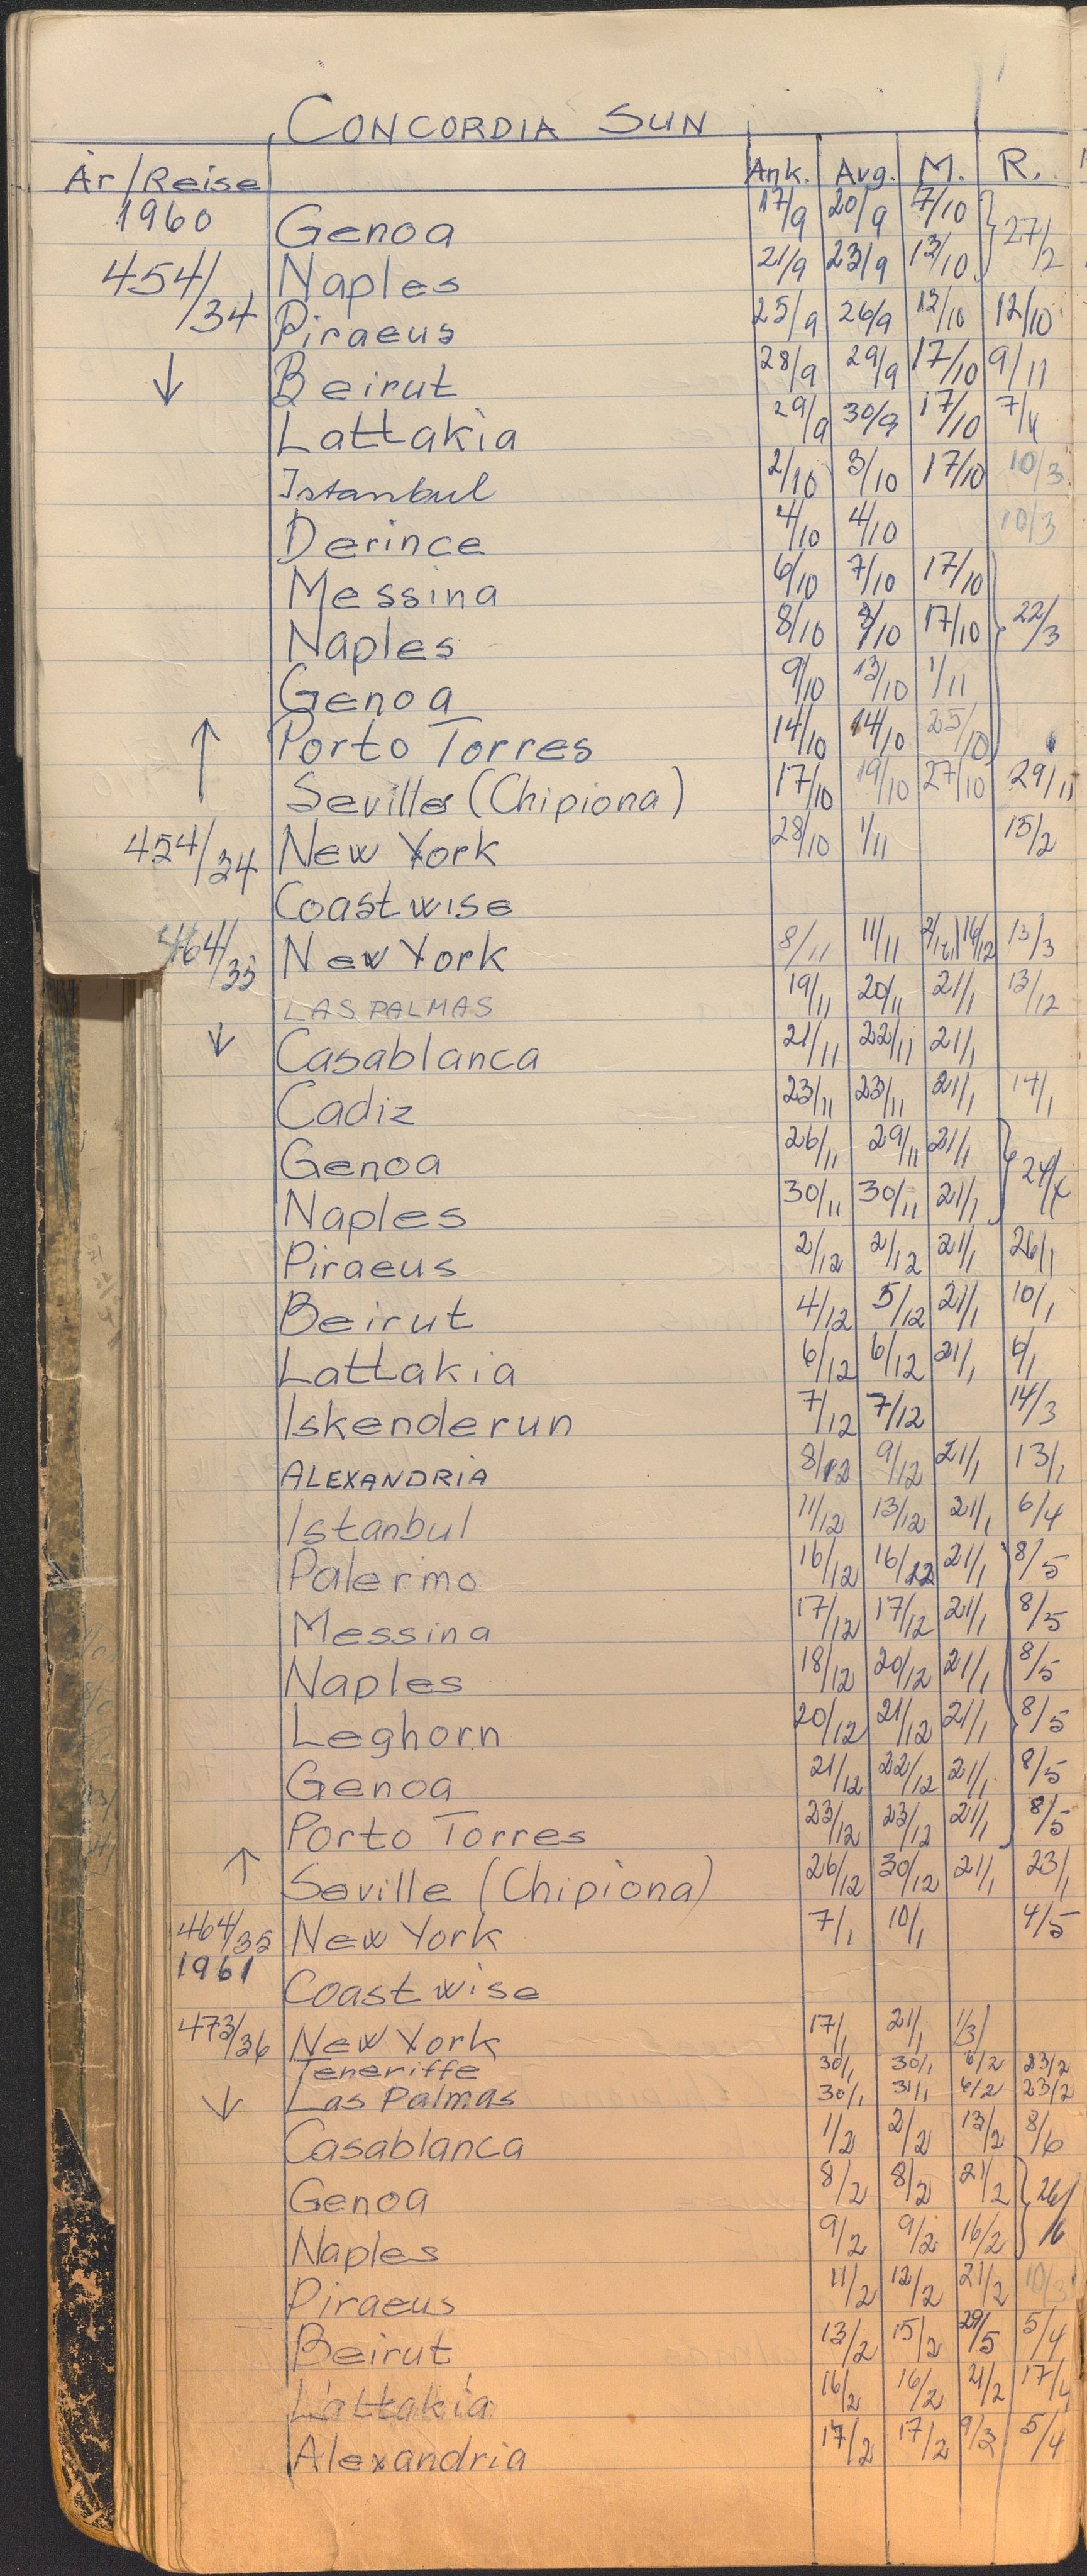 CONCORDIA SUN
År/Reise Ank. Avg. M. R.
1960 Genoa 17/9 20/9 7/10
454/34 Naples 21/9 23/9 13/10 } 27/2
Piraeus 25/9 26/9 12/10 12/10
↓ Beirut 28/9 29/9 17/10 9/11
Lattakia 29/9 30/9 17/10 7/11
Istanbul 2/10 3/10 17/10 10/3
Derince 4/10 4/10 10/3
Messina 6/10 7/10 17/10
Naples 8/10 8/10 17/10 } 22/3
Genoa 9/10 13/10 1/11
↑ Porto Torres 14/10 14/10 25/10
Seville (Chipiona) 17/10 19/10 27/10 29/11
454/34 New York 28/10 1/11 15/2
Coastwise
464/35 New York 8/11 11/11 16/12 13/3
LAS PALMAS 19/11 20/11 21/1 13/12
↓ Casablanca 21/11 22/11 21/1
Cadiz 23/11 23/11 21/1 17/1
Genoa 26/11 29/11 21/1
Naples 30/11 30/11 21/1
Piraeus 2/12 2/12 21/1 26/1
Beirut 4/12 5/12 21/1 10/1
Lattakia 6/12 6/12 21/1 6/1
Iskenderun 7/12 7/12 14/3
ALEXANDRIA 8/12 9/12 21/1 13/1
Istanbul 11/12 13/12 21/1 6/4
Palermo 16/12 16/12 21/1 8/5
Messina 17/12 17/12 21/1 8/5
Naples 18/12 20/12 21/1 8/5
Leghorn 20/12 21/12 21/1 8/5
Genoa 21/12 22/12 21/1 8/5
Porto Torres 23/12 23/12 21/1 8/5
↑ Seville (Chipiona) 26/12 30/12 21/1 23/1
464/35 New York 7/1 10/1 4/5
1961 Coastwise
473/36 New York 17/1 21/1 1/3
Teneriffe 30/1 30/1 6/2 23/2
↓ Las Palmas 30/1 31/1 6/2 23/2
Casablanca 1/2 2/2 13/2 8/6
Genoa 8/2 8/2 21/2 } 26/
Naples 9/2 9/2 16/2 16
Piraeus 11/2 12/2 21/2 10/3
Beirut 13/2 15/2 29/5 5/4
Lattakia 16/2 16/2 21/2 17/4
Alexandria 17/2 17/2 9/3 5/4